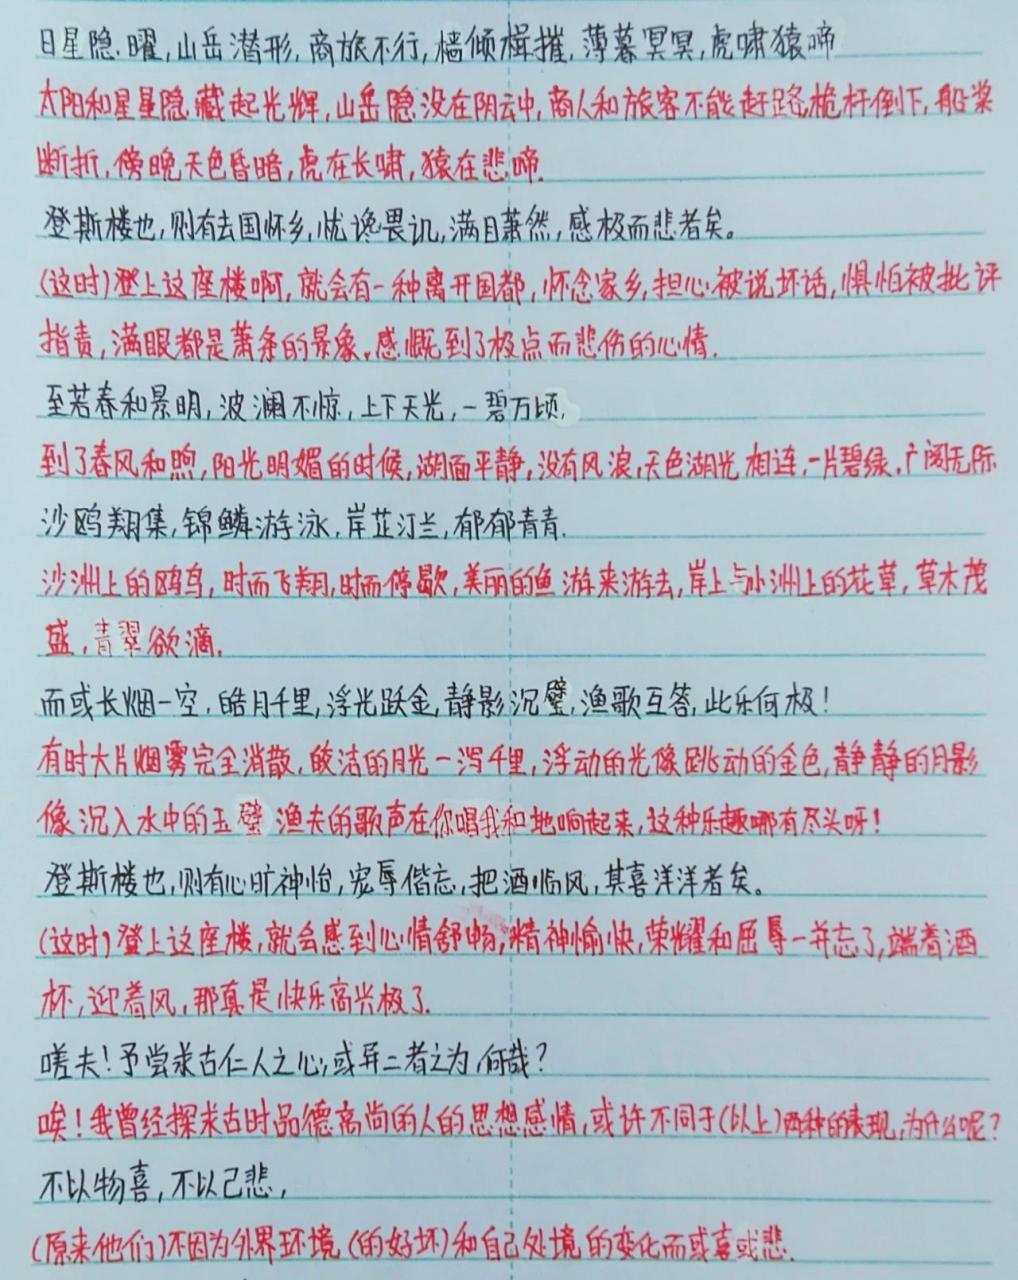 日星隐曜,山岳潜形,商旅不行,樯倾楫摧,薄暮冥冥,虎啸猿啼
太阳和星星隐藏起光辉,山岳隐没在阴云中,商人和旅客不能赶路,桅杆倒下,船桨
断折,傍晚天色昏暗,虎在长啸,猿在悲啼.
登斯楼也,则有去国怀乡,忧谗畏讥,满目萧然,感极而悲者矣。
(这时)登上这座楼啊,就会有一种离开国都,怀念家乡,担心被说坏话,惧怕被批评
指责,满眼都是萧条的景象,感慨到了极点而悲伤的心情.
至若春和景明,波澜不惊,上下天光,一碧万顷,
到了春风和煦,阳光明媚的时候,湖面平静,没有风浪,天色湖光相连,一片碧绿,广阔无际
沙鸥翔集,锦鳞游泳,岸芷汀兰,郁郁青青.
沙洲上的鸥鸟,时而飞翔,时而停歇,美丽的鱼游来游去,岸上与小洲上的花草,草木茂
盛,青翠欲滴.
而或长烟一空,皓月千里,浮光跃金,静影沉璧,渔歌互答,此乐何极!
有时大片烟雾完全消散,皎洁的月光一泻千里,浮动的光像跳动的金色,静静的月影
像沉入水中的玉璧,渔夫的歌声在你唱我和地响起来,这种乐趣哪有尽头呀!
登斯楼也,则有心旷神怡,宠辱偕忘,把酒临风,其喜洋洋者矣。
(这时)登上这座楼,就会感到心情舒畅,精神愉快,荣耀和屈辱一并忘了,端着酒
杯,迎着风,那真是快乐高兴极了.
嗟夫!予尝求古仁人之心,或异二者之为,何哉?
唉!我曾经探求古时品德高尚的人的思想感情,或许不同于(以上)两种的表现,为什么呢?
不以物喜,不以己悲,
(原来他们)不因为外界环境(的好坏)和自己处境的变化而或喜或悲.